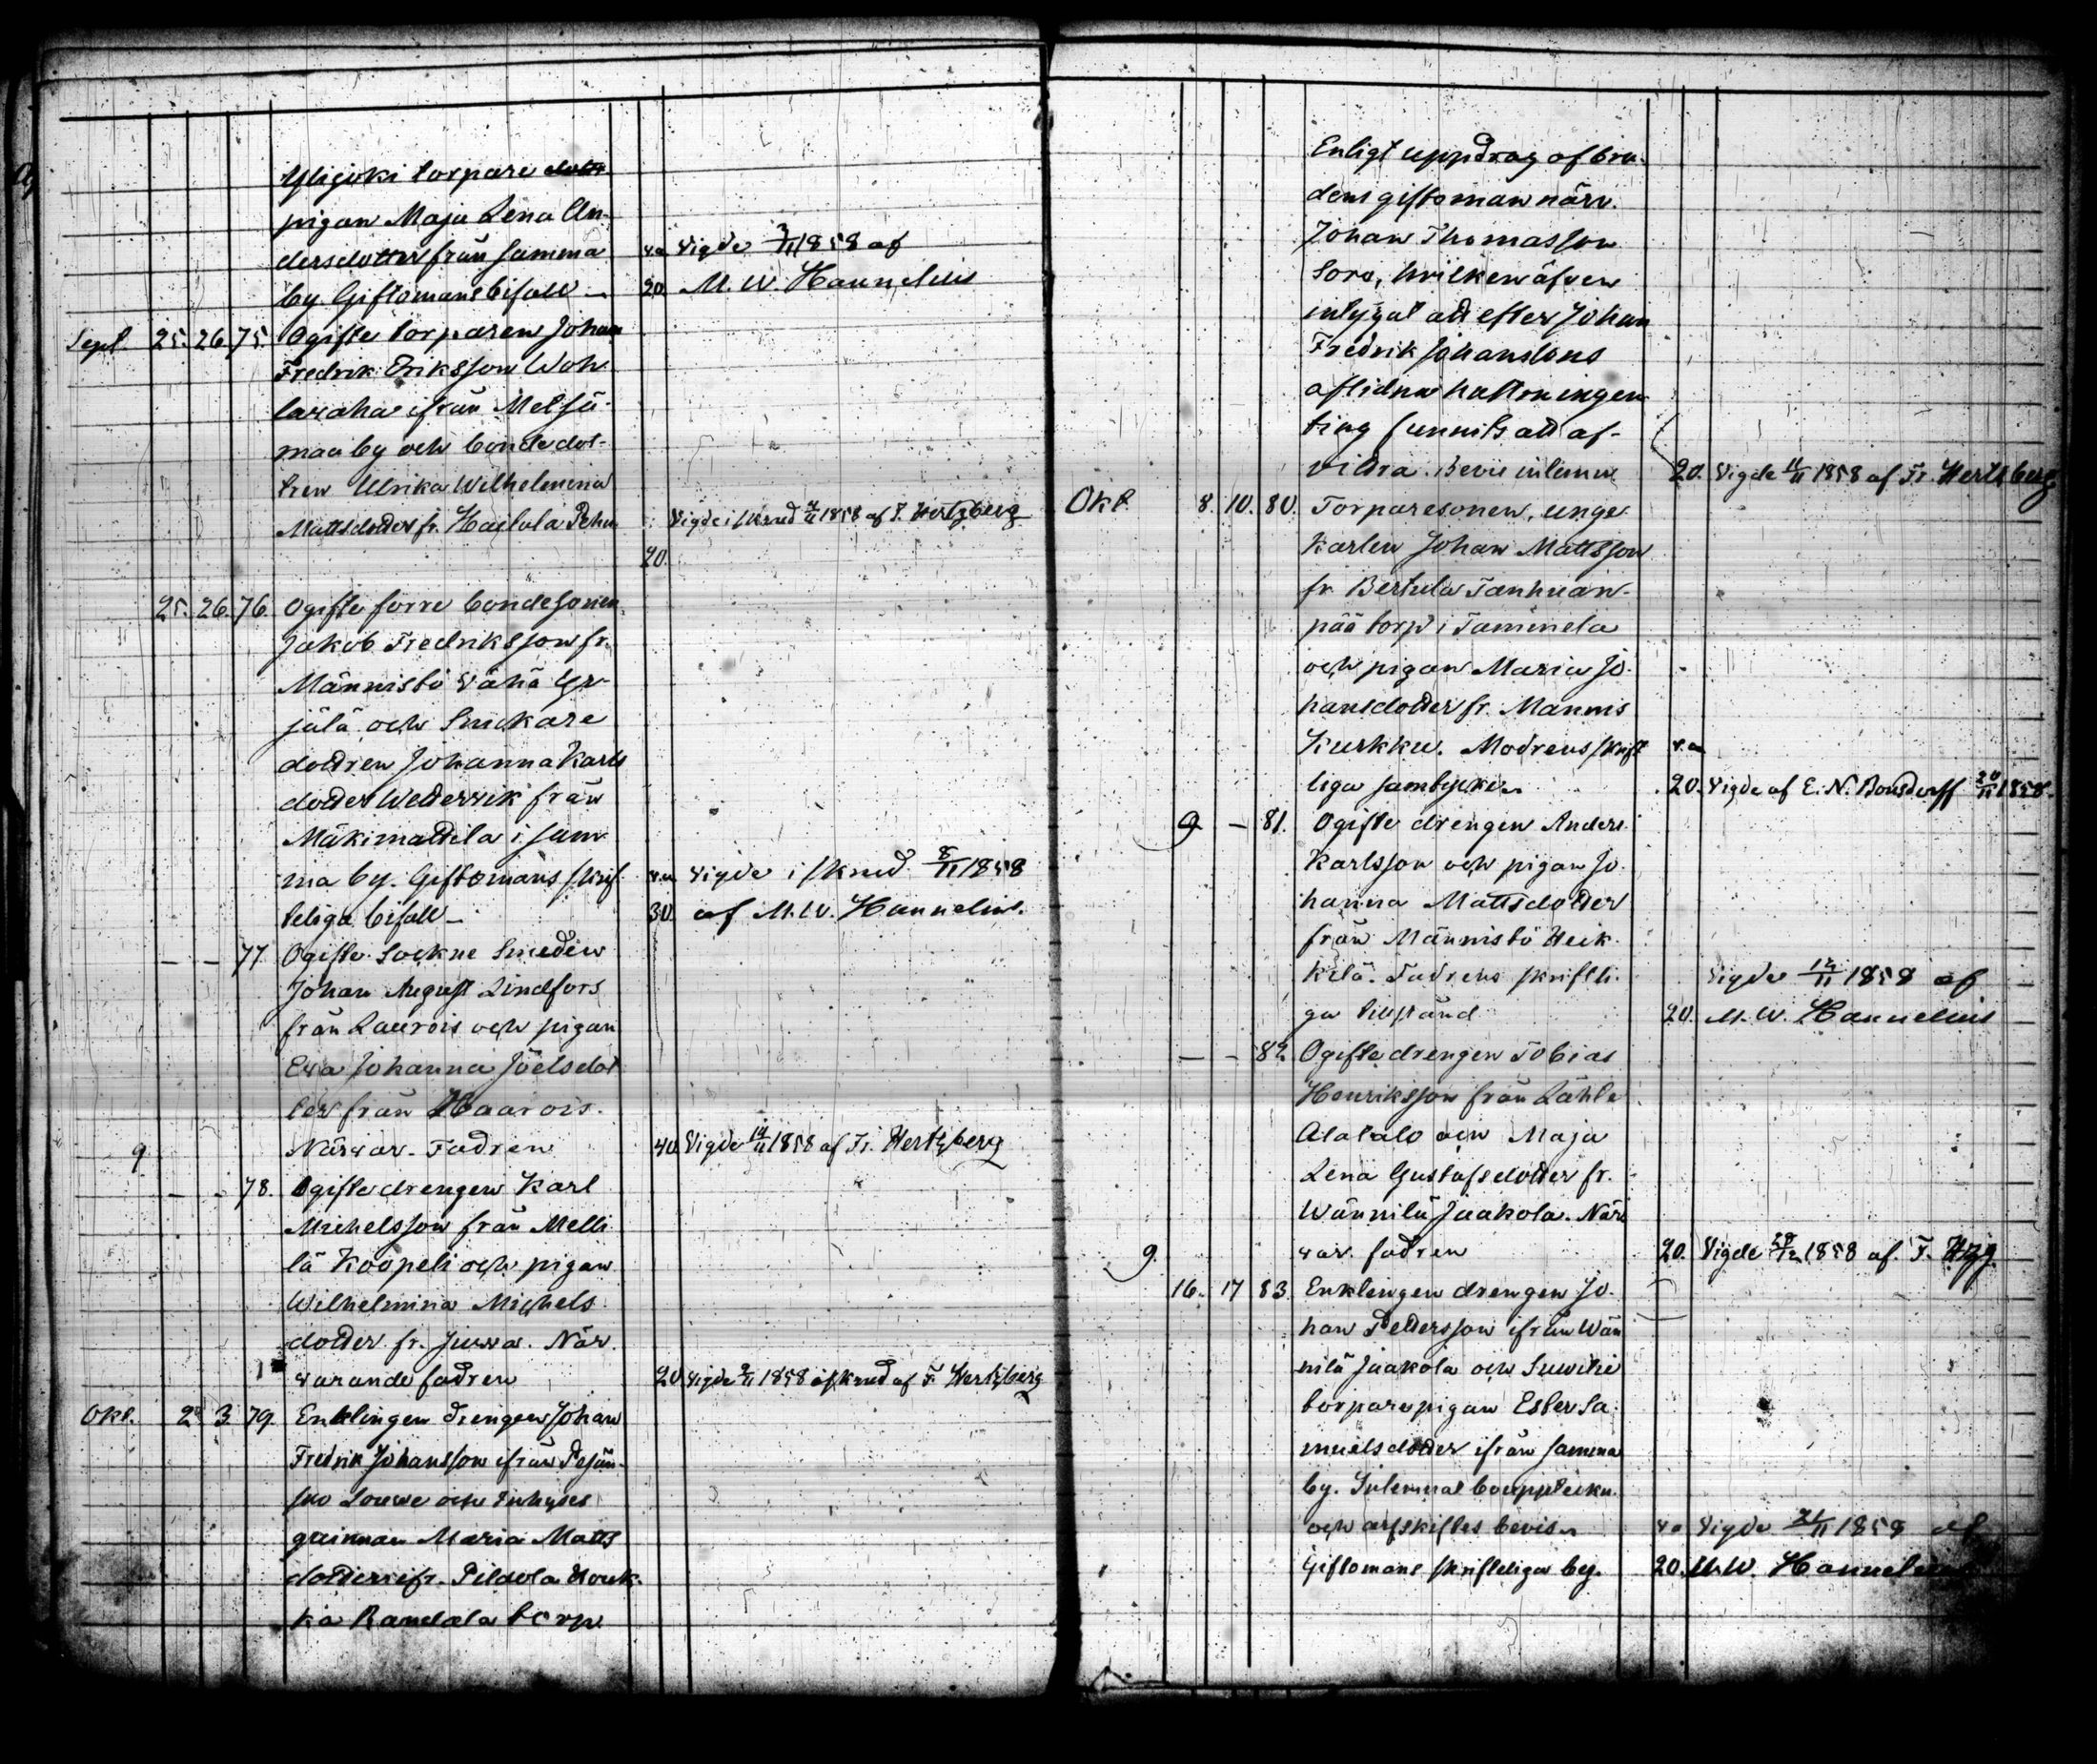 Ylijoki torpare
pigan Maja Lena An-
dersdotter från samma
by. Giftomans bifall
va Vigde 7/11 1858 af
20. M. W. Hannelius
Sept. 25. 26. 75. Ogifte torparen Johan
Fredrik Eriksson Woh
laraha ifrån Metsä-
maa by och bondedot-
tren Ulrika Wilhelmina
Mattsdotter fr. Haitula
Vigde i skrud 1858 af F. Hertzberg
20.
25. 26. 76. Ogifte förre bondesonen
Jakob Fredriksson fr.
Männistö Vähä Yr-
jälä och Snickare
dottren Johanna Karls
dotter Wedervik från
Mäkimattila i sam-
ma by. Giftomans skrif-
teliga bifall
va Vigde i skrud 8/11 1858
30. af M. W. Hannelius.
— — 77. Ogifte Sockne Smeden
Johan August Lindfors
från Laurois och pigan
Eva Johanna Joelsdot
ter från Haarois.
9 Närvar. Fadren
40. Vigde 14/11 1858 af Fr. Hertzberg
— - 78. Ogifte drengen Karl
Michelsson från Melli
lä Koopeli och pigan
Wilhelmina Michels
dotter fr. Juva. När
varande fadren
20. Vigde 1858 i skrud af F. Hertzberg
Okt. 2 3 79. Enklingen drengen Johan
Fredrik Johansson ifrån
Maria Matts
dotter ifr.
Randala torp
Enligt uppdrag af bru-
dens giftoman närv.
Johan Thomasson
Soro, hvilken äfven
intygat att efter Johan
Fredrik Johanssons
aflidna hustru ingen
ting funnits att af-
vittra. Bevis inlemn
20. Vigde 11/11 1858 af Fr. Hertzberg
Okt. 8. 10. 80. Torparesonen, unge
karlen Johan Mattsson
fr. Bertula Tanhuan-
pää torp i Tammela
och pigan Maria Jo-
hansdotter fr. Mannis
Kurkku. Modrens skrift
liga samtycke
va
20. Vigde af E. N. Bonsdorff 20/11 1858.
9 — 81. Ogifte drengen Anders
Karlsson och pigan Jo-
hanna Mattsdotter
från Männistö Heik-
kilä. Fadrens skriftli-
ga tillstånd
Vigde 14/11 1858 af
20. M. W. Hannelius
— - 82 Ogifte drengen Tobias
Henriksson från Lähle
Alatalo och Maja
Lena Gustafsdotter fr.
Wännilä Jaakola. När
9. var. fadren
20. Vigde 1858 af. F. Hzg.
16. 17 83. Enklingen drengen Jo-
han Pettersson ifrån Wän
nilä Jaakola och
torpare pigan Ester Sa-
muelsdotter ifrån samma
by. Inlemnat bouppteckn.
och arfskiftes bevis
va Vigde 21/11 1858 af
Giftomans skrifteliga by.
20. M. W. Hannelius